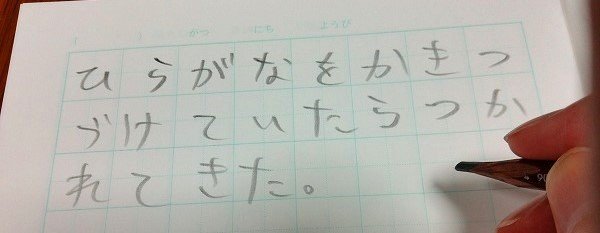 がつ にち ようび
ひらがなをかきつ
づけていたらつか
れてきた。